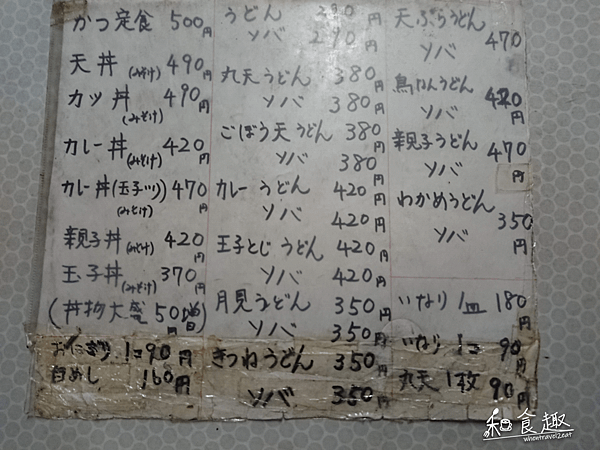 かつ定食 500円
天丼(みそ汁) 490円
カツ丼(みそ汁) 490円
カレー丼(みそ汁) 420円
カレー丼(玉子ツリ)(みそ汁) 470円
親子丼(みそ汁) 420円
玉子丼(みそ汁) 370円
(丼物大盛 50円増)
おにぎり 1コ90円
白めし 160円
うどん 290円
ソバ 290円
丸天うどん 380円
ソバ 380円
ごぼう天うどん 380円
ソバ 380円
カレーうどん 420円
ソバ 420円
玉子とじうどん 420円
ソバ 420円
月見うどん 350円
ソバ 350円
きつねうどん 350円
ソバ 350円
天ぷらうどん 470円
ソバ
鳥なんうどん 420円
ソバ
親子うどん 470円
ソバ
わかめうどん 350円
ソバ
いなり 1皿 180円
いなり 1コ 90円
丸天 1枚 90円
和食趣
whentravel2eat